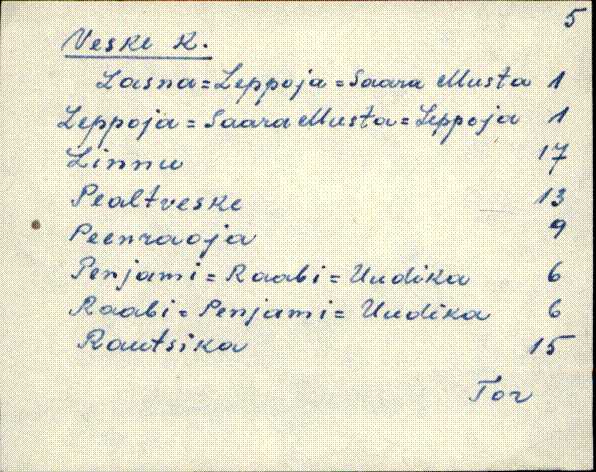 5
Veske K.
Lasna=Leppoja=Saara Musta 1
Leppoja=Saara Musta=Leppoja 1
Linnu 17
Pealtveske 13
Peenraoja 9
Penjami=Raabi=Uudika 6
Raabi=Penjami=Uudika 6
Rautsika 15
Tor